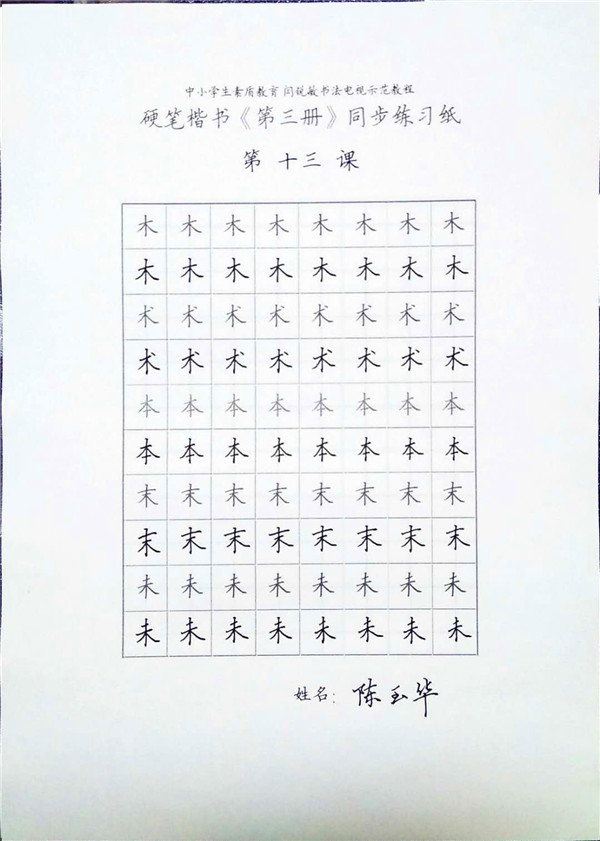 中小学生素质教育 闫锐敏书法电视示范教程
硬笔楷书《第三册》同步练习纸
第 十三 课
木 木 木 木 木 木 木 木
木 木 木 木 木 木 木 木
术 术 术 术 术 术 术 术
术 术 术 术 术 术 术 术
本 本 本 本 本 本 本 本
本 本 本 本 本 本 本 本
末 末 末 末 末 末 末 末
末 末 末 末 末 末 末 末
未 未 未 未 未 未 未 未
未 未 未 未 未 未 未 未
姓名: 陈玉华